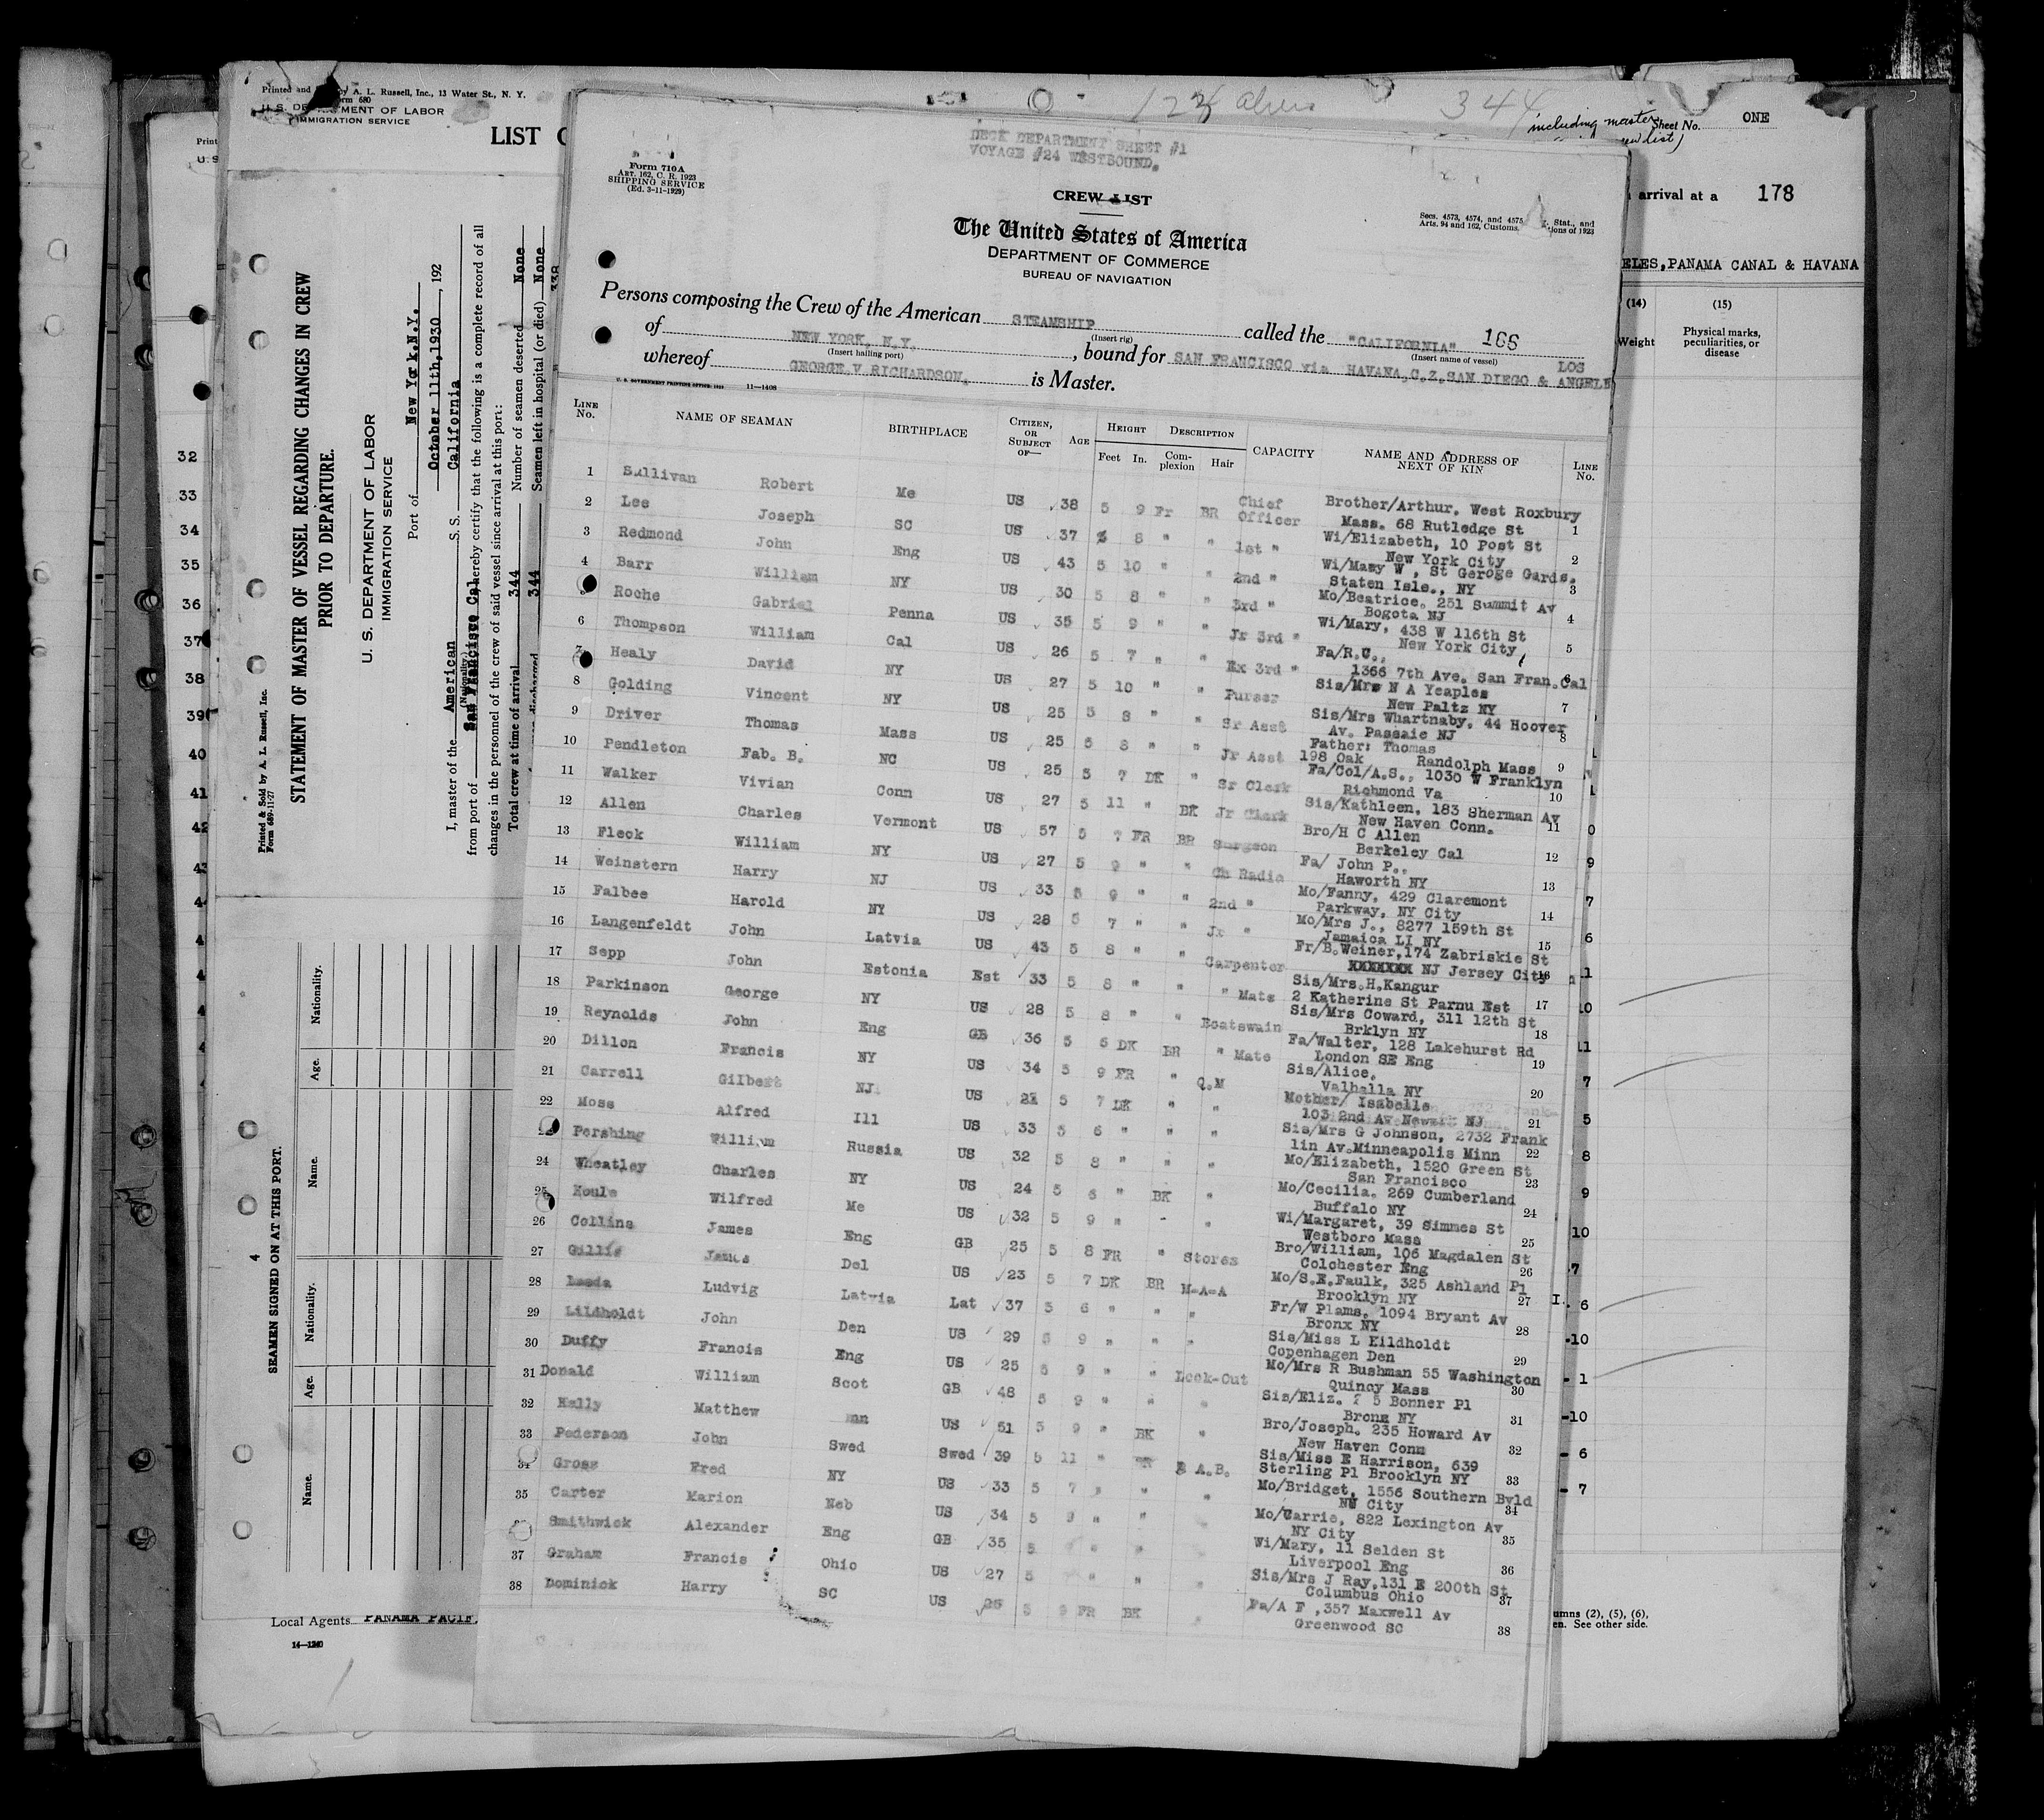 Printed and by A. L. Russell, Inc., 13 Water St., N. Y.
Form 680
U. S. DEPARTMENT OF LABOR
IMMIGRATION SERVICE
LIST
344
including master
Sheet No. ONE
arrival at a 178
ELES,PANAMA CANAL & HAVANA
(14) (15)
Weight Physical marks, peculiarities, or disease
Printed & Sold by A. L. Russell, Inc.
Form 689-11-27
STATEMENT OF MASTER OF VESSEL REGARDING CHANGES IN CREW
PRIOR TO DEPARTURE.
U. S. DEPARTMENT OF LABOR
IMMIGRATION SERVICE
Port of New York.N.Y.
October 11th,1930, 192
I, master of the American S. S. California
(Nationality)
from port of San Francisco Cal hereby certify that the following is a complete record of all
changes in the personnel of the crew of said vessel since arrival at this port:
Total crew at time of arrival 344 Number of seamen deserted None
344 Seamen left in hospital (or died) None
4
SEAMEN SIGNED ON AT THIS PORT.
Name. Age. Nationality. Name. Age. Nationality.
Local Agents PANAMA PACIF
14—1240
DECK DEPARTMENT SHEET #1
VOYAGE #24 WESTBOUND.
Form 710A
ART. 162, C. R. 1923
SHIPPING SERVICE
(Ed. 3-11-1929)
CREW LIST
Secs. 4573, 4574, and 4575 Stat., and
Arts. 94 and 162, Customs. tions of 1923
The United States of America
DEPARTMENT OF COMMERCE
BUREAU OF NAVIGATION
Persons composing the Crew of the American STEAMSHIP called the "CALIFORNIA" 166
(Insert rig) (Insert name of vessel)
of NEW YORK, N.Y. , bound for SAN FRANCISCO via HAVANA,C.Z.SAN DIEGO & LOS ANGELE
(Insert hailing port)
whereof GEORGE V RICHARDSON, is Master.
U. S. GOVERNMENT PRINTING OFFICE: 1929 11—1408
LINE No. NAME OF SEAMAN BIRTHPLACE CITIZEN, OR SUBJECT OF— AGE HEIGHT Feet In. DESCRIPTION Complexion Hair CAPACITY NAME AND ADDRESS OF NEXT OF KIN LINE No.
1 Sullivan Robert Me US 38 5 9 Fr BR Chief Officer Brother/Arthur, West Roxbury Mass. 68 Rutledge St 1
2 Lee Joseph SC US 37 8 " " 1st " Wi/Elizabeth, 10 Post St New York City 2
3 Redmond John Eng US 43 5 10 " " 2nd " Wi/Mary W , St Geroge Gards. Staten Isle., NY 3
4 Barr William NY US 30 5 8 " " 3rd " Mo/Beatrice. 251 Summit Av Bogota NJ 4
Roche Gabriel Penna US 35 5 9 " " Jr 3rd " Wi/Mary, 438 W 116th St New York City 5
6 Thompson William Cal US 26 5 7 " " Ex 3rd " Fa/R.C., 1366 7th Ave. San Fran.Cal
7 Healy David NY US 27 5 10 " " Purser Sis/Mrs N A Yeaples New Paltz NY 7
8 Golding Vincent NY US 25 5 8 " " Sr Asst Sis/Mrs Whartnaby. 44 Hoover Av. Passaic NJ 8
9 Driver Thomas Mass US 25 5 8 " " Jr Asst Father: Thomas 198 Oak Randolph Mass 9
10 Pendleton Fab. B. NC US 25 5 7 DK " Sr Clerk Fa/Col/A.S., 1030 W Franklyn Richmond Va 10
11 Walker Vivian Conn US 27 5 11 " BK Jr Clerk Sis/Kathleen, 183 Sherman Av New Haven Conn. 11
12 Allen Charles Vermont US 57 5 7 FR BR Surgeon Bro/H C Allen Berkeley Cal 12
13 Fleck William NY US 27 5 9 " " Ch Radio Fa/ John P., Haworth NY 13
14 Weinstern Harry NJ US 33 5 9 " " 2nd " Mo/Fanny, 429 Claremont Parkway, NY City 14
15 Falbee Harold NY US 28 5 7 " " Jr " Mo/Mrs J., 8277 159th St Jamaica LI NY 15
16 Langenfeldt John Latvia US 43 5 8 " " Carpenter Fr/B.Weiner,174 Zabriskie St NJ Jersey City 16
17 Sepp John Estonia Est 33 5 8 " " " Mate Sis/Mrs.H.Kangur 2 Katherine St Parnu Est 17
18 Parkinson George NY US 28 5 8 " " Boatswain Sis/Mrs Coward, 311 12th St Brklyn NY 18
19 Reynolds John Eng GB 36 5 6 DK BR " Mate Fa/Walter, 128 Lakehurst Rd London SE Eng 19
20 Dillon Francis NY US 34 5 9 FR " Q.M Sis/Alice, Valhalla NY 20
21 Carrell Gilbert NJ US 5 7 DK " " Mother/ Isabelle 103 2nd Av Newark NJ 21
22 Moss Alfred Ill US 33 5 6 " " " Sis/Mrs G Johnson, 2732 Frank lin Av.Minneapolis Minn 22
Pershing William Russia US 32 5 8 " " " Mo/Elizabeth, 1520 Green St San Francisco 23
24 Wheatley Charles NY US 24 5 6 " BK " Mo/Cecilia. 269 Cumberland Buffalo NY 24
25 Houle Wilfred Me US 32 5 9 " - " Wi/Margaret, 39 Simmes St Westboro Mass 25
26 Collins James Eng GB 25 5 8 FR " Stores Bro/William, 106 Magdalen St Colchester Eng 26
27 Gillis James Del US 23 5 7 DK BR M-A-A Mo/S.E.Faulk, 325 Ashland Pl Brooklyn NY 27
28 Ludvig Latvia Lat 37 5 6 " " " Fr/W Plams, 1094 Bryant Av Bronx NY 28
29 Lildholdt John Den US 29 5 9 " " " Sis/Miss L Eildholdt Copenhagen Den 29
30 Duffy Francis Eng US 25 5 9 " " Look-Out Mo/Mrs R Bushman 55 Washington Quincy Mass 30
31 Donald William Scot GB 48 5 9 " " " Sis/Eliz. 5 Bonner Pl Bronx NY 31
32 Kelly Matthew US 51 5 9 " BK " Bro/Joseph. 235 Howard Av New Haven Conn 32
33 Pederson John Swed Swed 39 5 11 " A.B. Sis/Miss E Harrison, 639 Sterling Pl Brooklyn NY 33
34 Gross Fred NY US 33 5 7 " " " Mo/Bridget, 1556 Southern Bvld NY City 34
35 Carter Marion Neb US 34 5 9 " " Mo/Carrie, 822 Lexington Av NY City 35
Smithwick Alexander Eng GB 35 5 " " Wi/Mary, 11 Selden St Liverpool Eng 36
37 Graham Francis Ohio US 27 5 " " Sis/Mrs J Ray,131 E 200th St Columbus Ohio 37
38 Dominick Harry SC US 25 5 9 FR BK " Fa/A F ,357 Maxwell Av Greenwood SC 38
32
33
34
35
36
37
38
39
40
41
42
umns (2), (5), (6),
en. See other side.